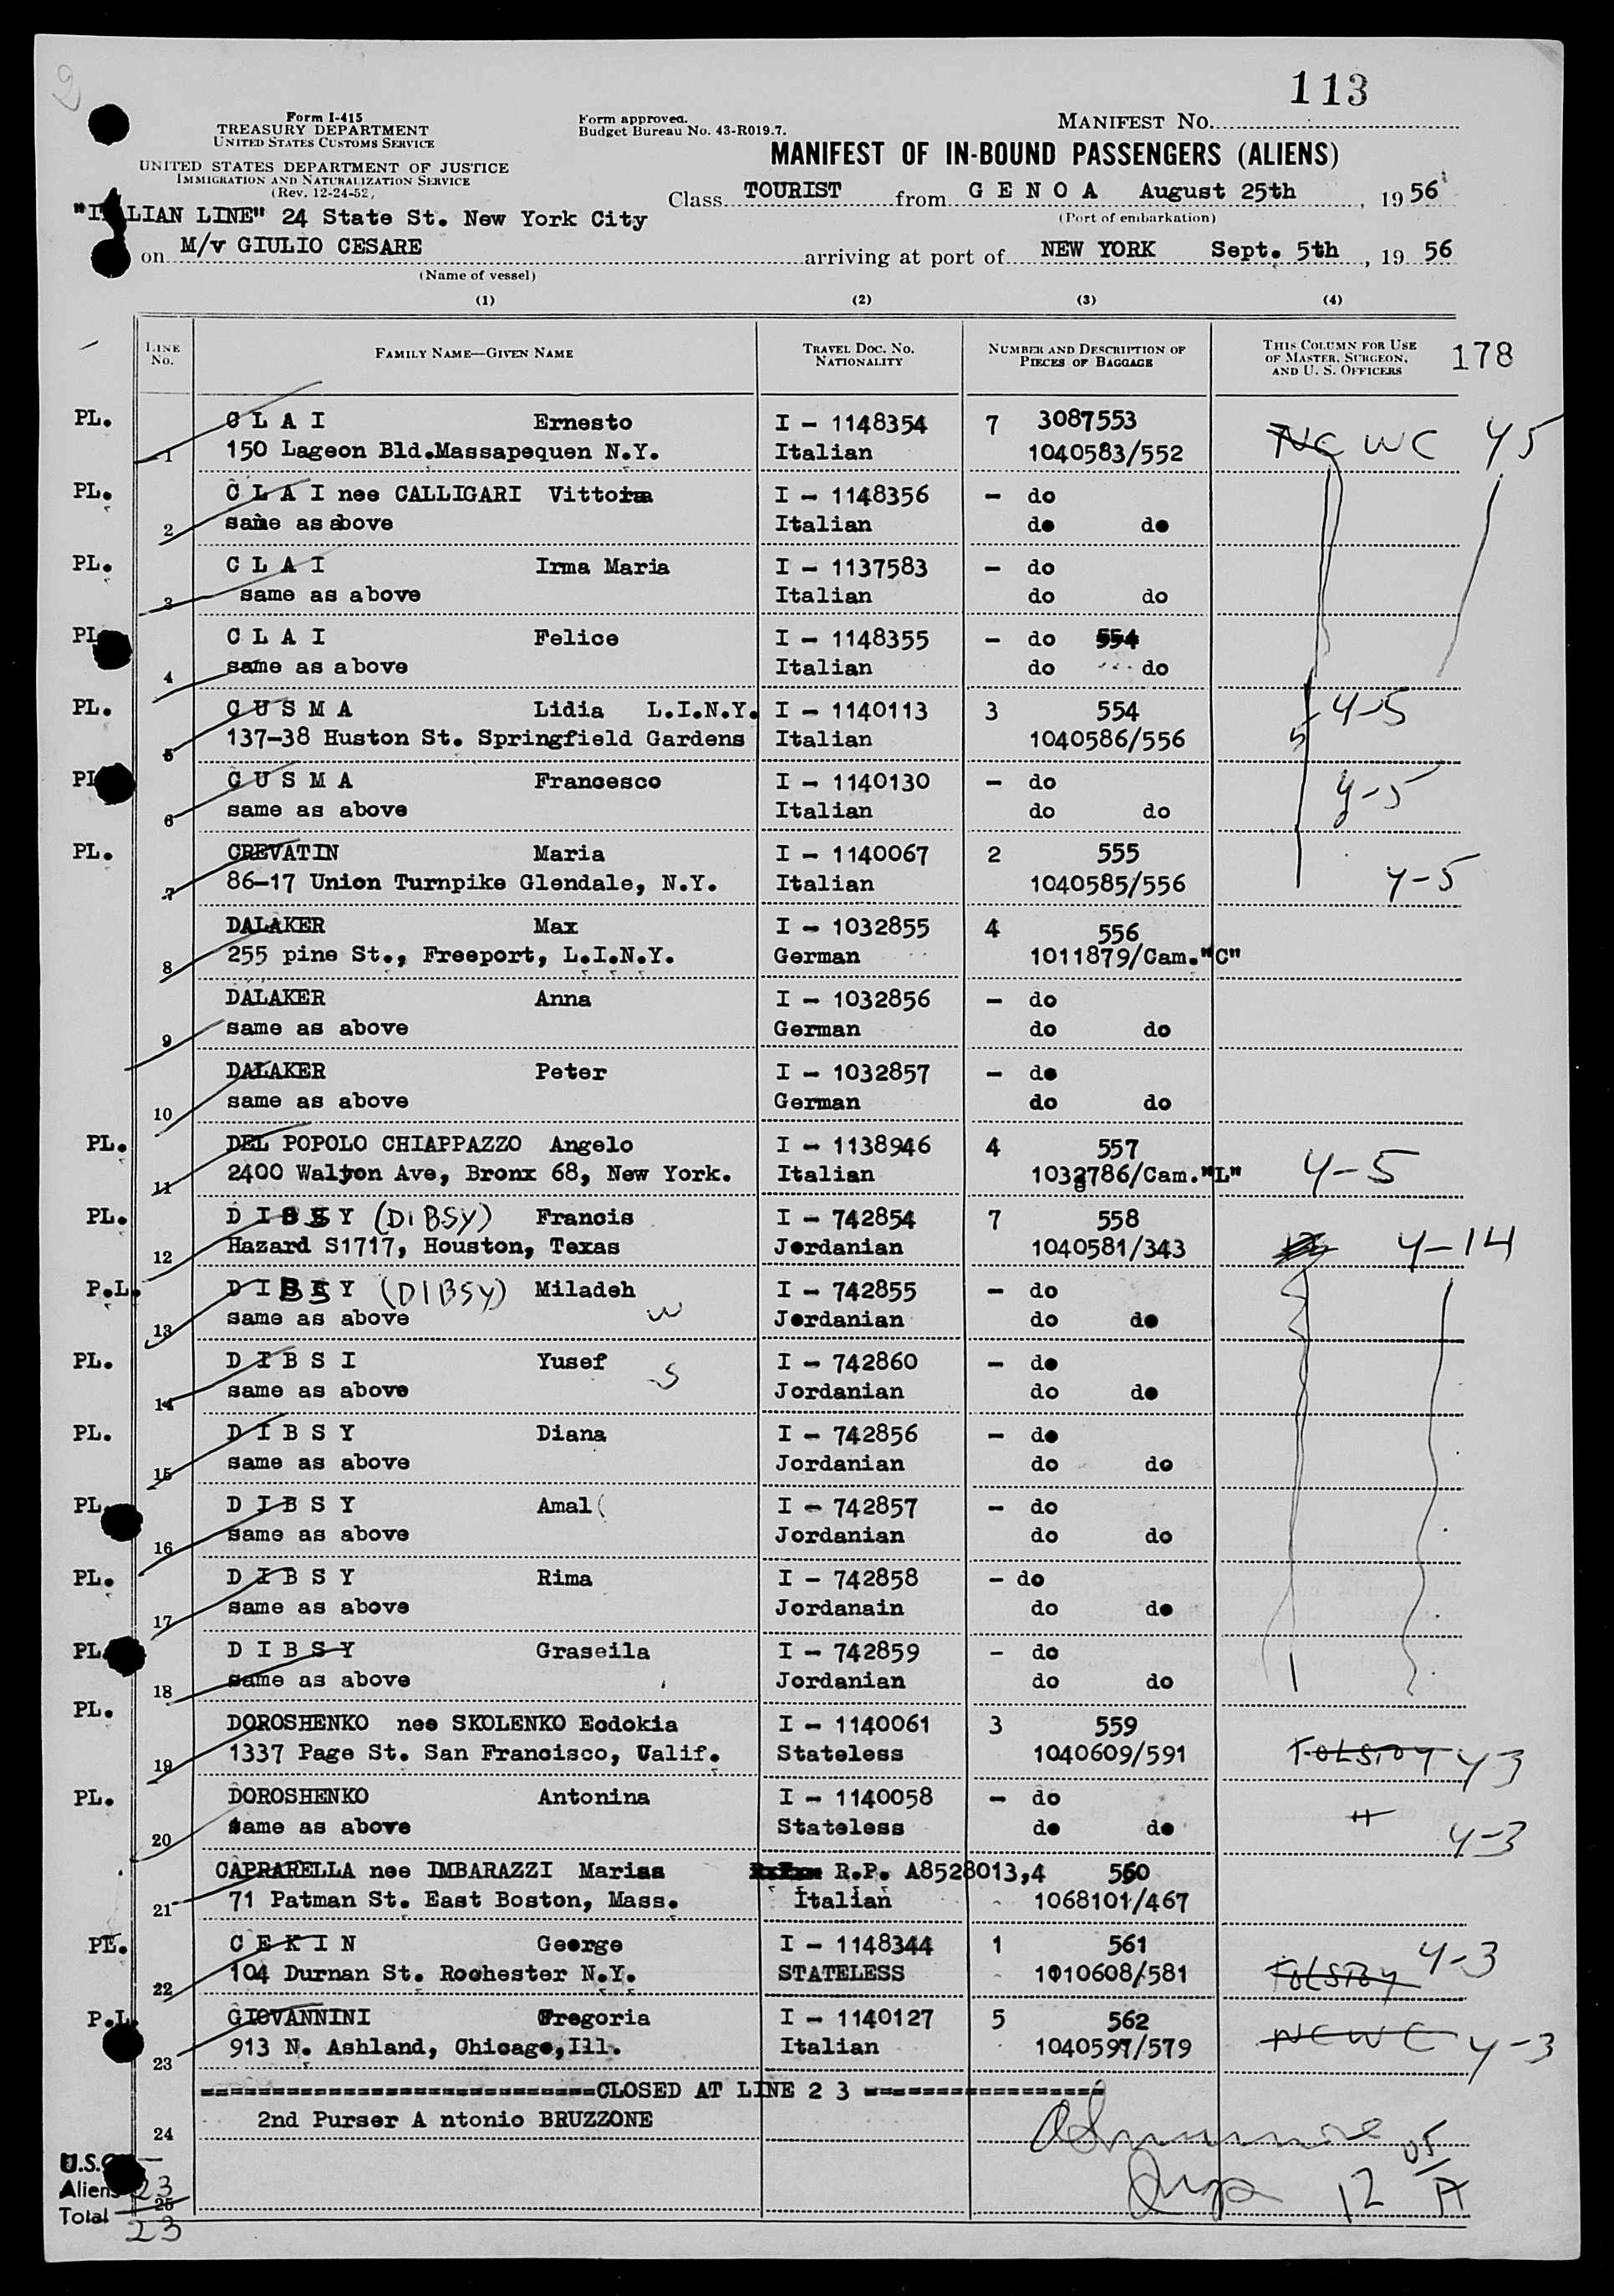 113
Form I-415
TREASURY DEPARTMENT
UNITED STATES CUSTOMS SERVICE
Form approved.
Budget Bureau No. 43-R019.7.
MANIFEST NO.
UNITED STATES DEPARTMENT OF JUSTICE
IMMIGRATION AND NATURALIZATION SERVICE
(Rev. 12-24-52)
MANIFEST OF IN-BOUND PASSENGERS (ALIENS)
Class TOURIST from G E N O A August 25th, 1956
(Port of embarkation)
"ITALIAN LINE" 24 State St. New York City
on M/v GIULIO CESARE arriving at port of NEW YORK Sept. 5th, 19 56
(Name of vessel)
(1) (2) (3) (4)
LINE NO. FAMILY NAME—GIVEN NAME TRAVEL DOC. NO. NATIONALITY NUMBER AND DESCRIPTION OF PIECES OF BAGGAGE THIS COLUMN FOR USE OF MASTER, SURGEON, AND U. S. OFFICERS 178
PL. C L A I Ernesto I - 1148354 7 3087553
1 150 Lageon Bld.Massapequen N.Y. Italian 1040583/552 NC WC Y5
PL. C L A I nee CALLIGARI Vittoria I - 1148356 - do
2 same as above Italian do do
PL. C L A I Irma Maria I - 1137583 - do
3 same as above Italian do do
PL. C L A I Felice I - 1148355 - do 554
4 same as above Italian do do
PL. C U S M A Lidia L.I.N.Y. I - 1140113 3 554 4-5
5 137-38 Huston St. Springfield Gardens Italian 1040586/556
PL. C U S M A Francesco I - 1140130 - do 4-5
6 same as above Italian do do
PL. CREVATIN Maria I - 1140067 2 555
7 86-17 Union Turnpike Glendale, N.Y. Italian 1040585/556 4-5
DALAKER Max I - 1032855 4 556
8 255 pine St., Freeport, L.I.N.Y. German 1011879/Cam."C"
DALAKER Anna I - 1032856 - do
9 same as above German do do
DALAKER Peter I - 1032857 - do
10 same as above German do do
PL. DEL POPOLO CHIAPPAZZO Angelo I - 1138946 4 557
11 2400 Walton Ave, Bronx 68, New York. Italian 1032786/Cam."L" 4-5
PL. D I B S Y (DIBSY) Francis I - 742854 7 558
12 Hazard S1717, Houston, Texas Jordanian 1040581/343 4-14
P.L. D I B S Y (DIBSY) Miladeh I - 742855 - do
13 same as above W Jordanian do do
PL. D I B S I Yusef S I - 742860 - do
14 same as above Jordanian do do
PL. D I B S Y Diana I - 742856 - do
15 same as above Jordanian do do
PL. D I B S Y Amal I - 742857 - do
16 same as above Jordanian do do
PL. D I B S Y Rima I - 742858 - do
17 same as above Jordanain do do
PL. D I B S Y Graseila I - 742859 - do
18 same as above Jordanian do do
PL. DOROSHENKO nee SKOLENKO Eodokia I - 1140061 3 559
19 1337 Page St. San Francisco, Calif. Stateless 1040609/591 TOLSTOY 4-3
PL. DOROSHENKO Antonina I - 1140058 - do "
20 same as above Stateless do do 4-3
CAPRARELLA nee IMBARAZZI Mariaa R.P. A8528013,4 560
21 71 Patman St. East Boston, Mass. Italian 1068101/467
PL. C E K I N George I - 1148344 1 561 4-3
22 104 Durnan St. Rochester N.Y. STATELESS 1010608/581 TOLSTOY
P.L. GIOVANNINI Gregoria I - 1140127 5 562
23 913 N. Ashland, Chicago, Ill. Italian 1040597/579 NCWC 4-3
============================CLOSED AT LINE 2 3 =================
24 2nd Purser A ntonio BRUZZONE
U.S.C. —
Aliens 23
25
Total 23
12